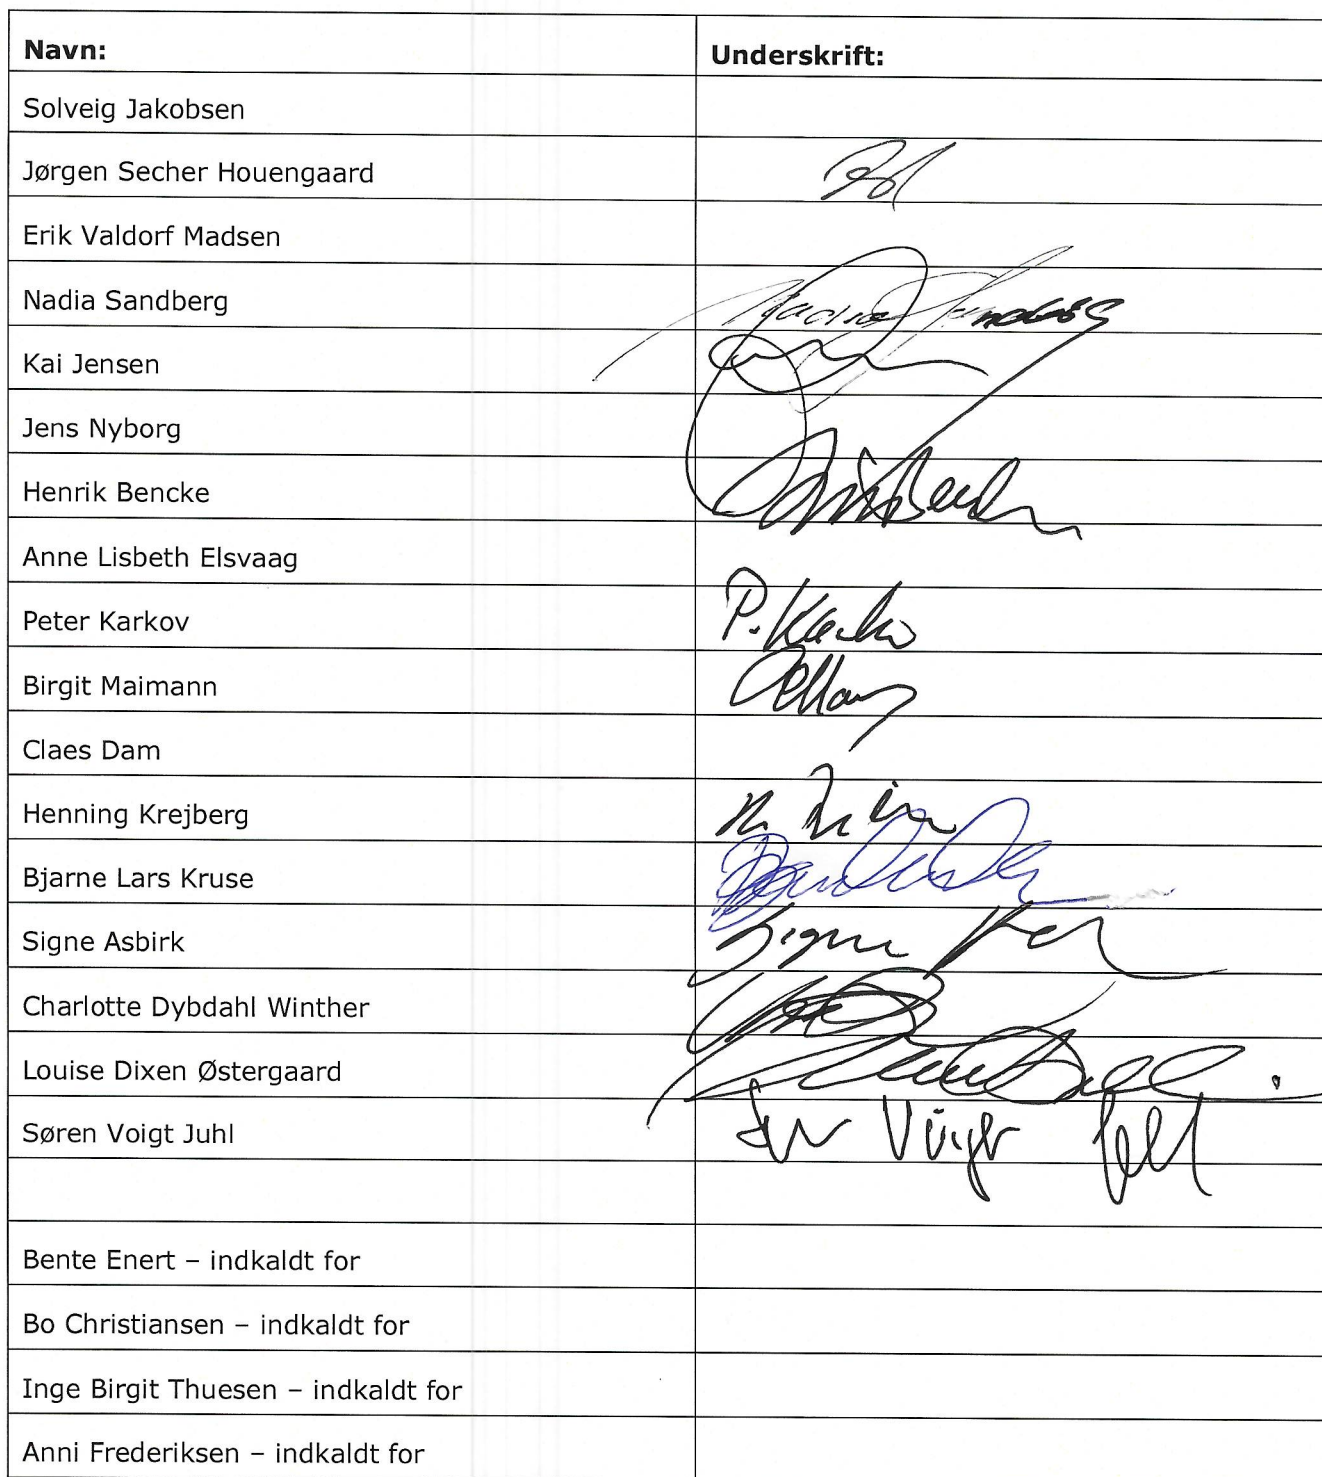 Navn: Underskrift:
Solveig Jakobsen
Jørgen Secher Houengaard
Erik Valdorf Madsen
Nadia Sandberg Nadia Sandberg
Kai Jensen
Jens Nyborg
Henrik Bencke
Anne Lisbeth Elsvaag
Peter Karkov P. Karkov
Birgit Maimann
Claes Dam
Henning Krejberg
Bjarne Lars Kruse
Signe Asbirk Signe
Charlotte Dybdahl Winther
Louise Dixen Østergaard
Søren Voigt Juhl Voigt Juhl
Bente Enert – indkaldt for
Bo Christiansen – indkaldt for
Inge Birgit Thuesen – indkaldt for
Anni Frederiksen – indkaldt for